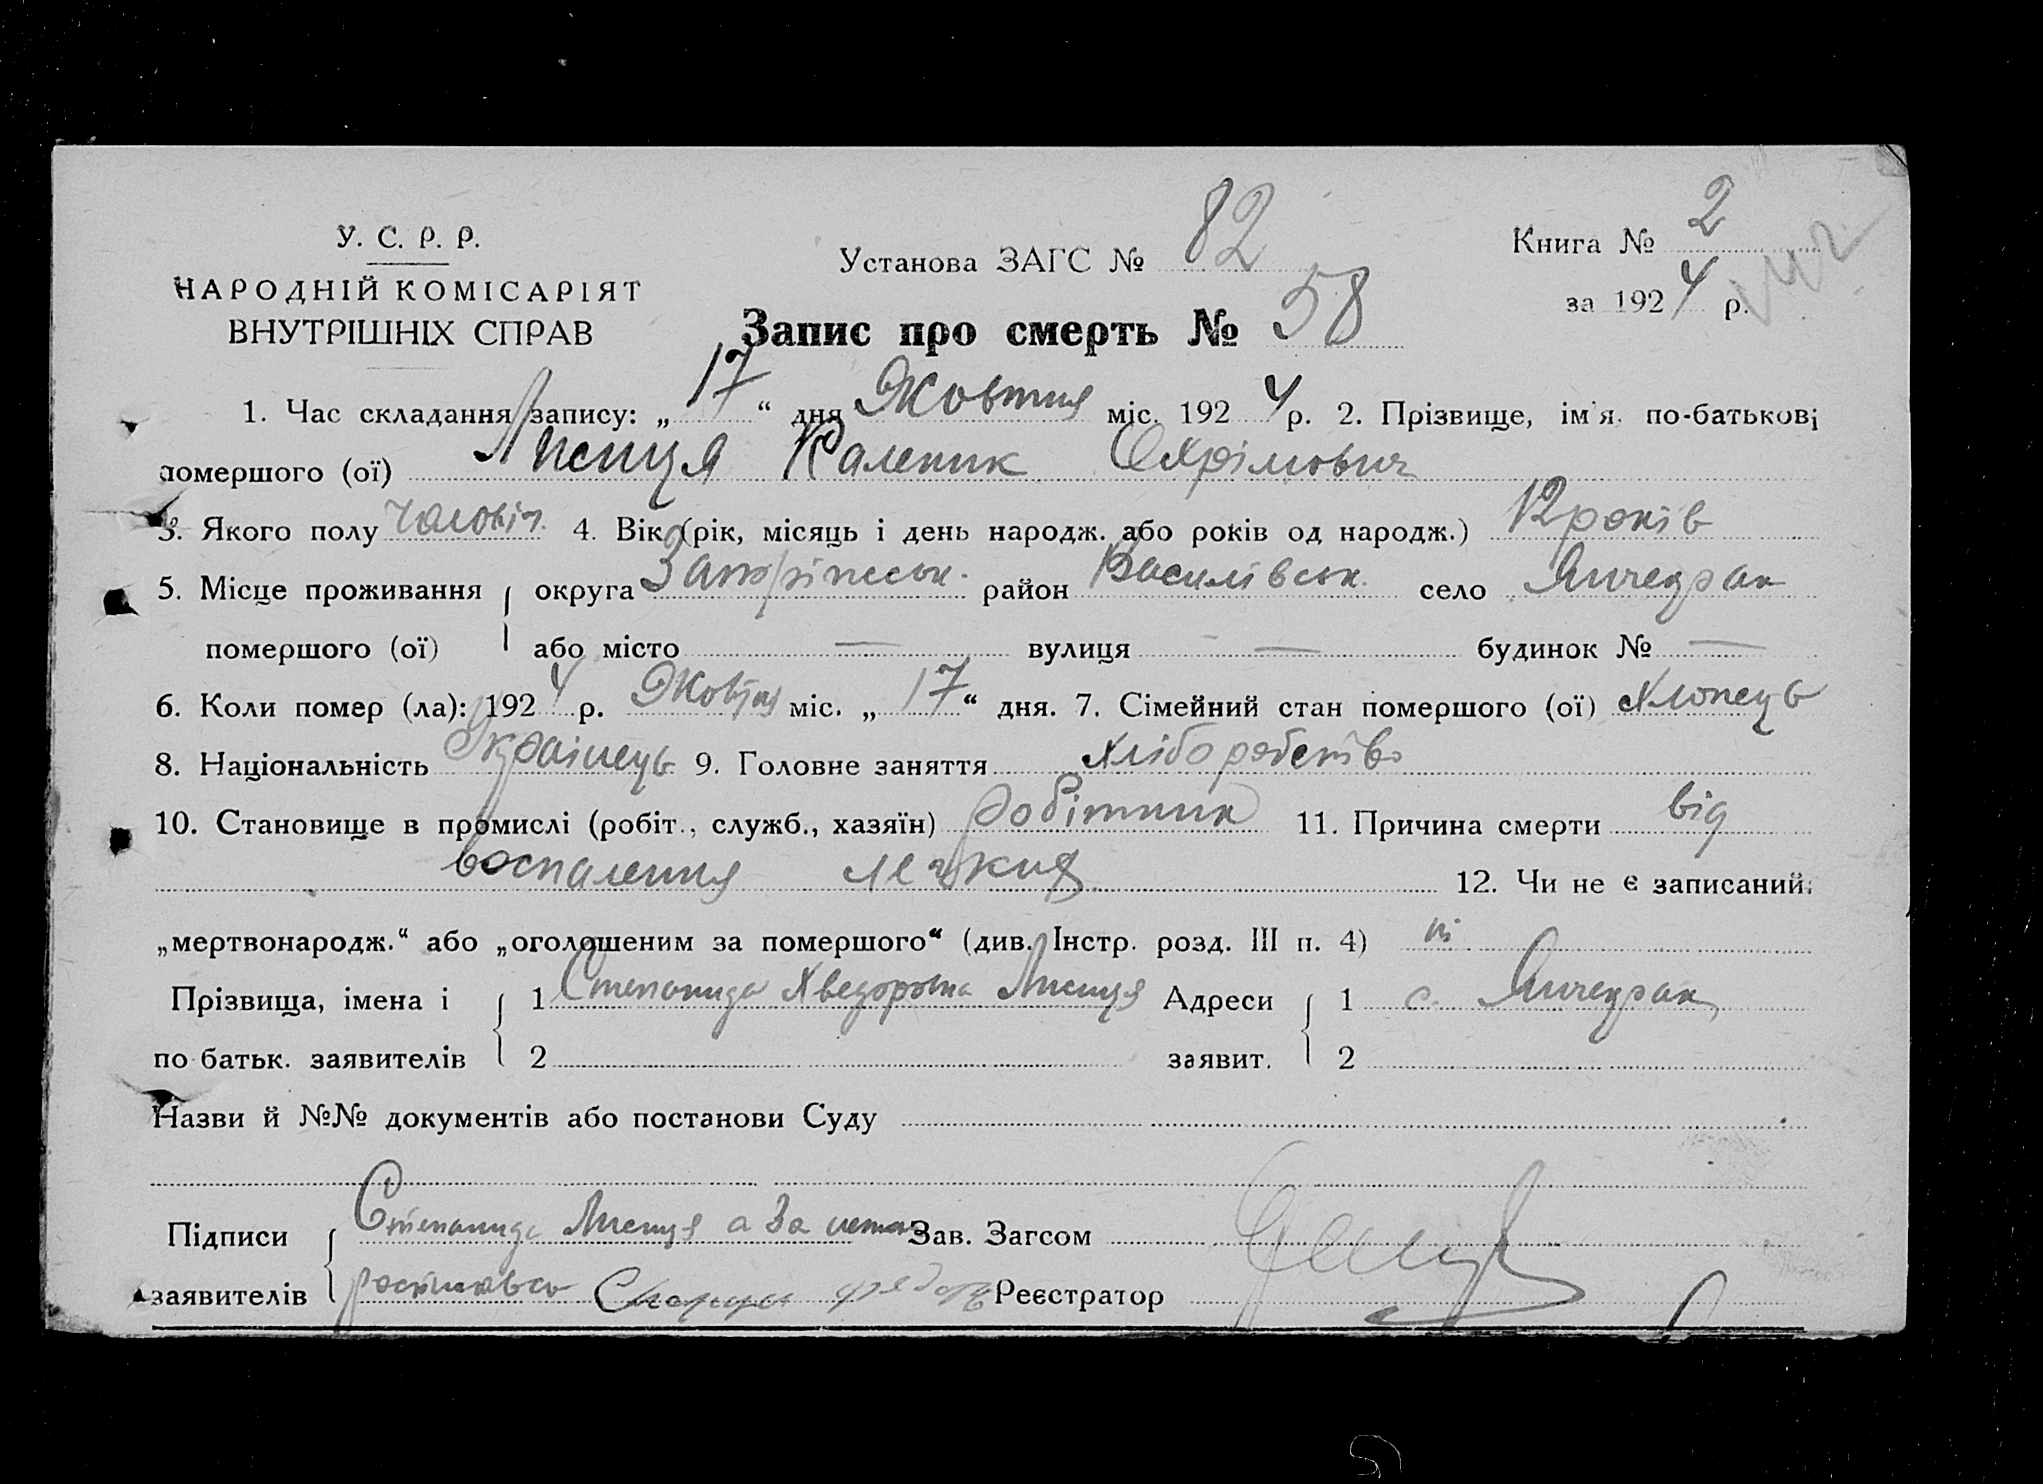 У. С. Р. Р.
НАРОДНІЙ КОМІСАРІЯТ
ВНУТРІШНІХ СПРАВ
Установа ЗАГС № 82
Книга № 2
за 1924 р.
Запис про смерть № 58
1. Час складання запису: „ 17 “ дня Жовтня міс. 1924 р. 2. Прізвище, ім'я, по-батькові
помершого (ої) Лисиця Каленик Охрімович
3. Якого полу чаловіч. 4. Вік (рік, місяць і день народж. або років од народж.) 12 років
5. Місце проживання округа район Василівськ. село Янчекрак
помершого (ої) або місто — вулиця — будинок № —
6. Коли помер (ла): 1924 р. Жовтня міс. „ 17 “ дня. 7. Сімейний стан помершого (ої) хлопець
8. Національність Українець 9. Головне заняття хліборобство
10. Становище в промислі (робіт., служб., хазяїн) робітник 11. Причина смерти від
воспалення легких 12. Чи не є записаний:
„мертвонародж.“ або „оголошеним за помершого“ (див. Інстр. розд. III п. 4) ні
Прізвища, імена і 1 Степанида Хведоровна Лисиця Адреси 1 с. Янчекрак
по батьк. заявителів 2 заявит. 2
Назви й №№ документів або постанови Суду
Підписи Степанида Лисиця а За Зав. Загсом
заявителів Реєстратор